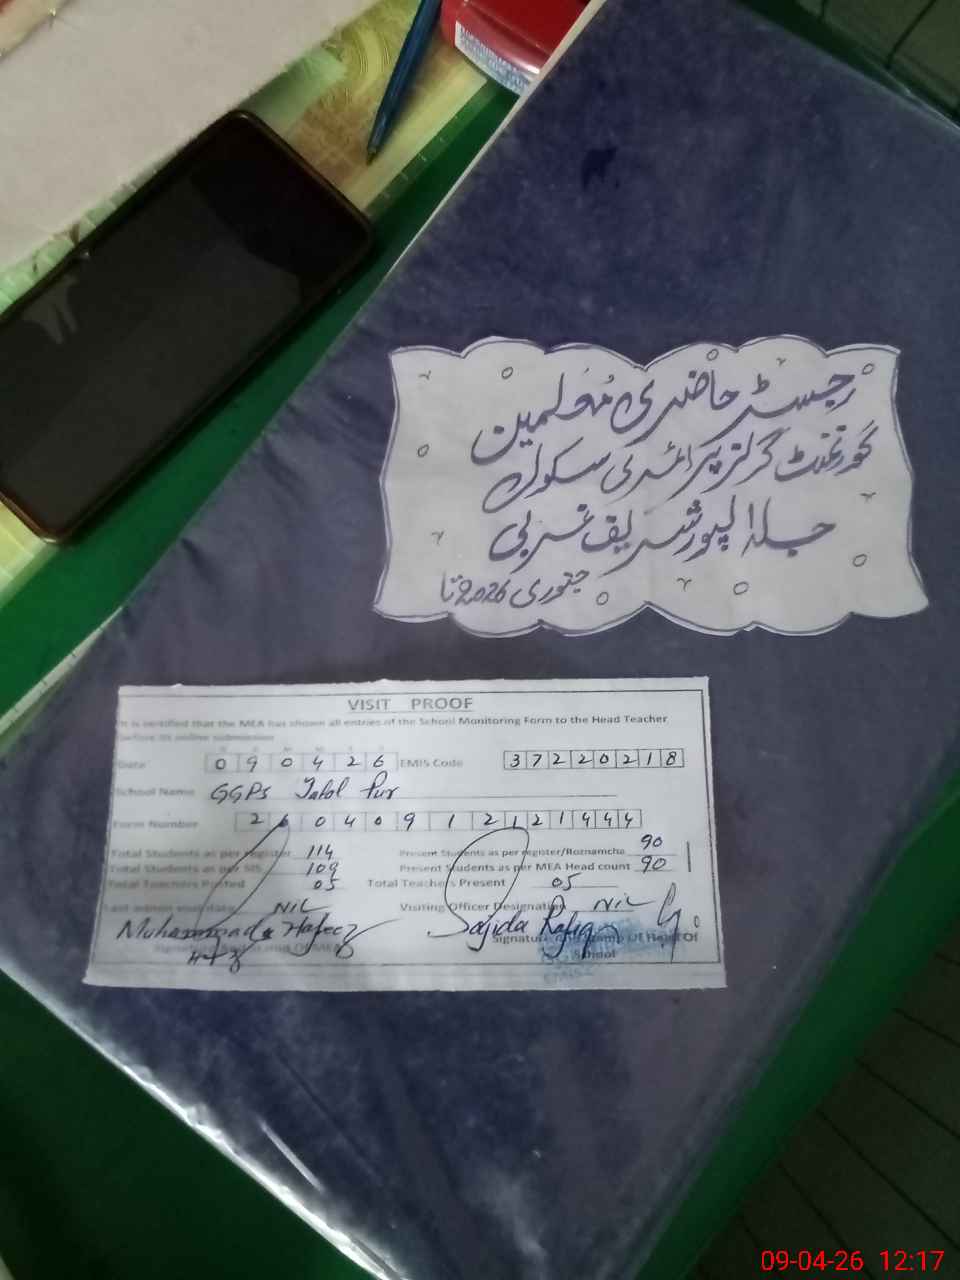 رجسٹر حاضری معلمین
گورنمنٹ گرلز پرائمری سکول
جلالپور شریف غربی
جنوری 2026 تا
VISIT PROOF
It is certified that the MEA has shown all entries of the School Monitoring Form to the Head Teacher
before its online submission
Date 0 9 0 4 2 6 EMIS Code 3 7 2 2 0 2 1 8
School Name GGPS Jalal Pur
Form Number 2 6 0 4 0 9 1 2 1 2 1 4 4 4
Total Students as per register 114 Present Students as per register/Roznamcha 90
Total Students as per SIS 109 Present Students as per MEA Head count 90
Total Teachers Posted 05 Total Teachers Present 05
NIL Visiting Officer Designation NIL
Muhammad Hafeez Sajida Rafiq
Signature and Stamp Of Head Of
School
09-04-26 12:17